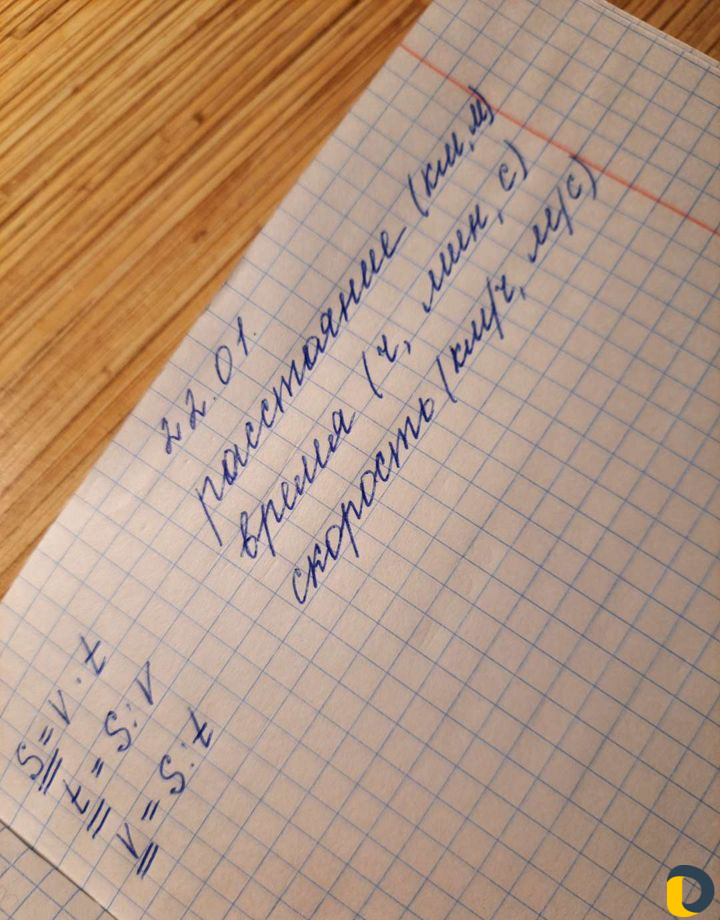 22.01.
расстояние (км, м)
время (ч, мин, с)
скорость (км/ч, м/с)
S = V · t
t = S : V
V = S : t